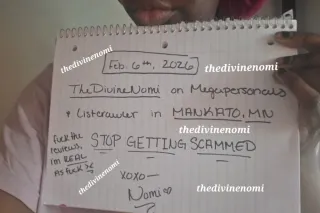 thedivinenomi
Feb. 6th, 2026
thedivinenomi
thedivinenomi
TheDivineNomi on Megapersonals
& Listcrawler in MANKATO, MN
thedivinenomi
Fuck the
reviews,
I'm REAL
As fuck
STOP GETTING SCAMMED
thedivinenomi
xoxo—
Nomi
thedivinenomi